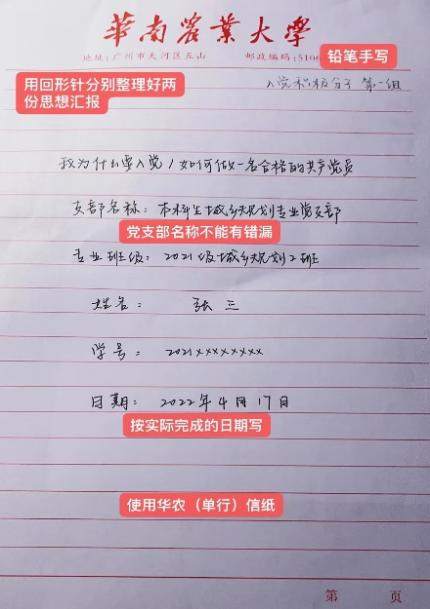 華南农業大學
地址:广州市天河区五山 邮政编码:5106
铅笔手写
用回形针分别整理好两
份思想汇报
入党积极分子 第一组
我为什么要入党/如何做一名合格的共产党员
支部名称:本科生城乡规划专业党支部
党支部名称不能有错漏
专业班级:2021级城乡规划2班
姓名: 张三
学号:2021xxxxxxxx
日期:2022年4月17日
按实际完成的日期写
使用华农(单行)信纸
第 页